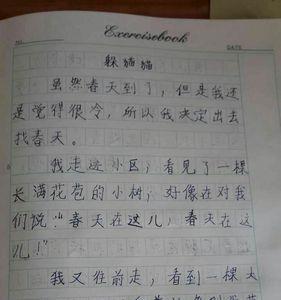 Exercisebook
NO.
DATE
躲猫猫
虽然春天到了，但是我还
是觉得很冷，所以我决定出去
找春天。
我走进小区，看见了一棵
长满花苞的小树，好像在对我
们说：“春天在这儿，春天在这
儿！”
我又往前走，看到一棵大